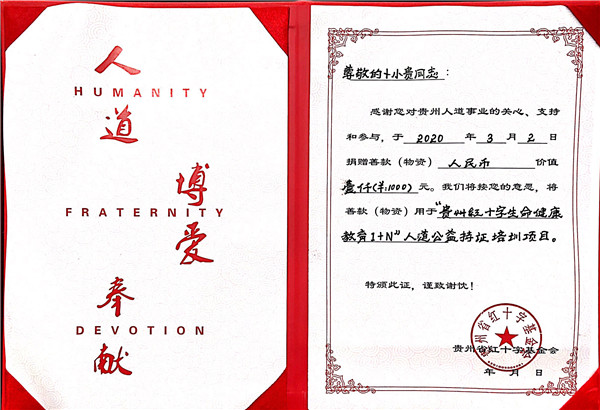 人
HUMANITY
道
博
FRATERNITY
爱
奉
DEVOTION
献
尊敬的十小贵同志：
感谢您对贵州人道事业的关心、支持
和参与，于 2020 年 3 月 2 日
捐赠善款（物资） 人民币 价值
壹仟(¥:1000) 元。我们将按您的意愿，将
善款（物资）用于“贵州红十字生命健康
教育1+N”人道公益持证培训项目。
特颁此证，谨致谢忱！
贵州省红十字基金会
贵州省红十字基金会
年 月 日